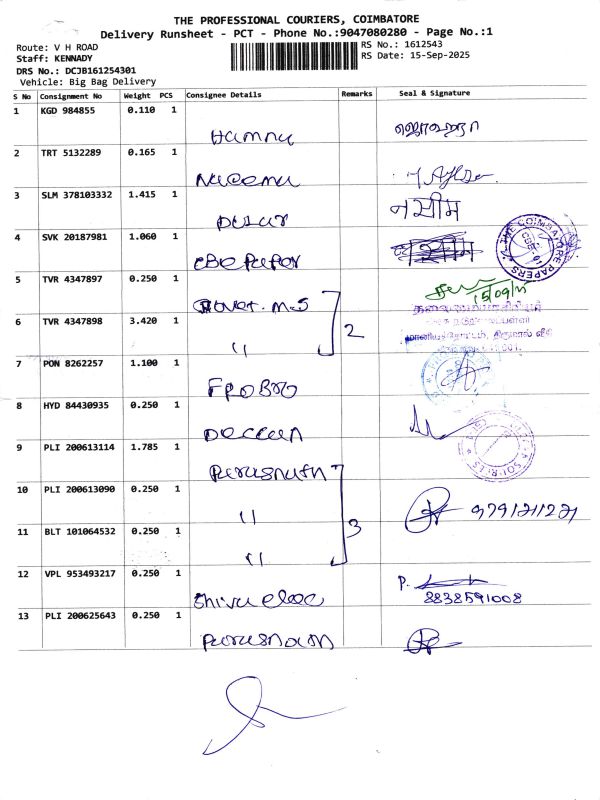 THE PROFESSIONAL COURIERS, COIMBATORE
Delivery Runsheet - PCT - Phone No.:9047080280 - Page No.:1
Route: V H ROAD
RS No.: 1612543
Staff: KENNADY
RS Date: 15-Sep-2025
DRS No.: DCJB161254301
Vehicle: Big Bag Delivery
S No Consignment No Weight PCS Consignee Details Remarks Seal & Signature
1 KGD 984855 0.110 1
Hamna
2 TRT 5132289 0.165 1
Naeema
3 SLM 378103332 1.415 1
नसीम
4 SVK 20187981 1.060 1
THE COIMBATORE PAPERS
5 TVR 4347897 0.250 1
15/09/
6 TVR 4347898 3.420 1
" 2
7 PON 8262257 1.100 1
8 HYD 84430935 0.250 1
Deccan
9 PLI 200613114 1.785 1
10 PLI 200613090 0.250 1
"
11 BLT 101064532 0.250 1
" 3
12 VPL 953493217 0.250 1
8838591008
13 PLI 200625643 0.250 1